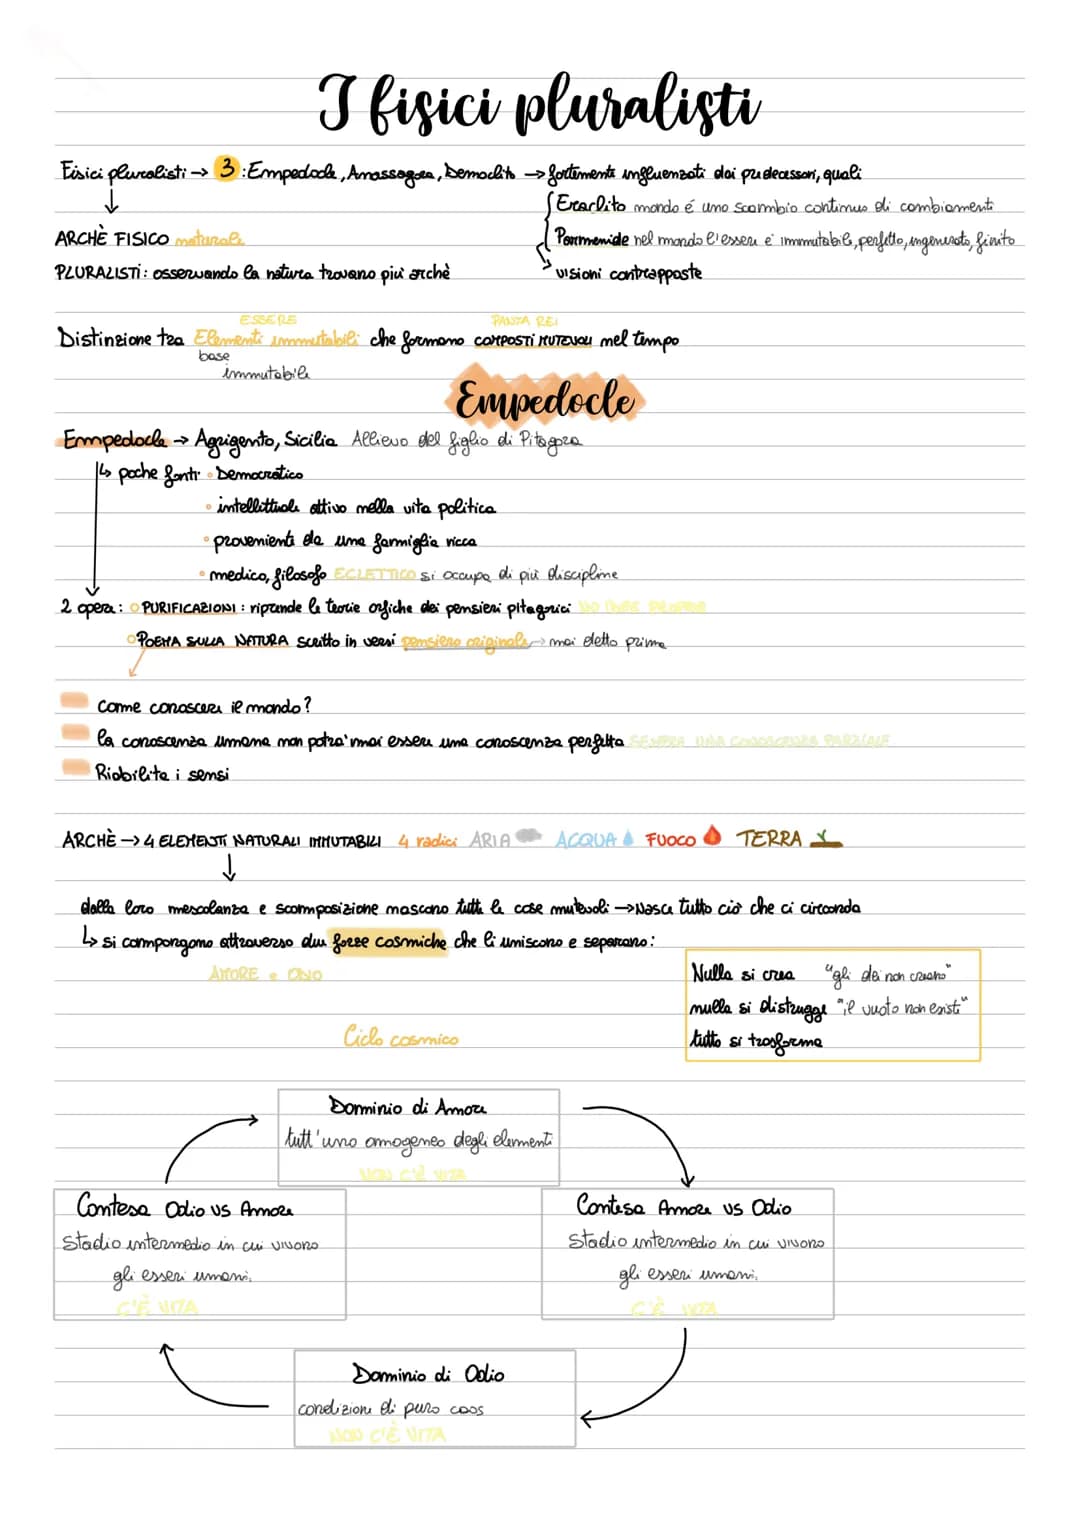 I fisici pluralisti
Fisici pluralisti → 3 : Empedocle, Anassagora, Democrito → fortemente influenzati dai predecessori, quali
Eraclito mondo é uno scambio continuo di cambiamenti
ARCHÈ FISICO naturale
Parmenide nel mondo l'essere e' immutabile, perfetto, ingenerato, finito
PLURALISTI: osservando la natura trovano piu' archè
visioni contrapposte
ESSERE PANTA REI
Distinzione tra Elementi immutabili che formano COMPOSTI MUTEVOLI nel tempo
base
immutabile
Empedocle
Empedocle → Agrigento, Sicilia Allievo del figlio di Pitagora
↳ poche fonti ∘ Democratico
∘ intellettuale attivo nella vita politica
∘ proveniente da una famiglia ricca
∘ medico, filosofo ECLETTICO si occupa di più discipline
2 opere: ∘ PURIFICAZIONI: riprende le teorie orfiche dei pensieri pitagorici
∘ POEMA SULLA NATURA scritto in versi pensiero originale → mai detto prima
Come conoscere il mondo?
la conoscenza umana non potra' mai essere una conoscenza perfetta SEMPRE UNA CONOSCENZA PARZIALE
Riabilita i sensi
ARCHÈ → 4 ELEMENTI NATURALI IMMUTABILI 4 radici ARIA ACQUA FUOCO TERRA
dalla loro mescolanza e scomposizione nascono tutte le cose mutevoli → Nasce tutto ciò che ci circonda
↳ si compongono attraverso due forze cosmiche che li uniscono e separano:
AMORE e ODIO
Nulla si crea "gli dei non creano"
nulla si distrugge "il vuoto non esiste"
tutto si trasforma
Ciclo cosmico
Dominio di Amore
tutt'uno omogeneo degli elementi
NON C'È VITA
Contesa Odio VS Amore
Stadio intermedio in cui vivono
gli esseri umani.
C'È VITA
Contesa Amore VS Odio
Stadio intermedio in cui vivono
gli esseri umani.
C'È VITA
Dominio di Odio
condizione di puro caos
NON C'È VITA